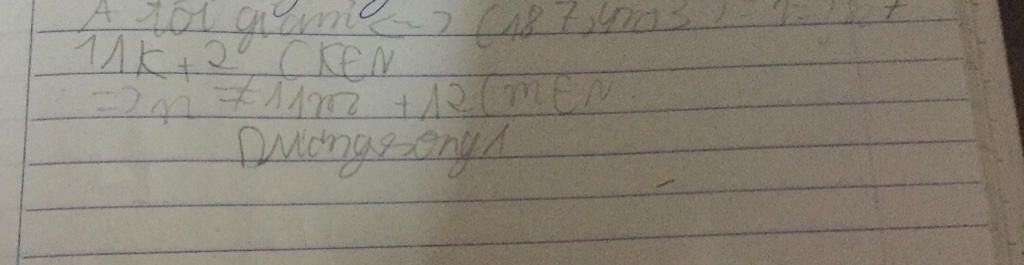 A tối giản <=> (187, 4n+3) = 1 => n ≠
11k + 2, (KEN
=> n ≠ 11m + 12 (mEN
Dươngsong1